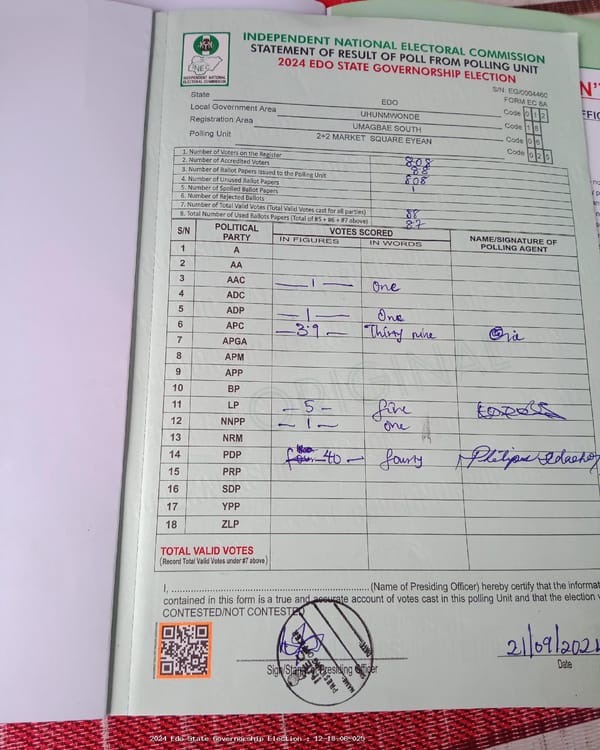 INDEPENDENT NATIONAL ELECTORAL COMMISSION
STATEMENT OF RESULT OF POLL FROM POLLING UNIT
2024 EDO STATE GOVERNORSHIP ELECTION
INEC
INDEPENDENT NATIONAL
ELECTORAL COMMISSION
S/N: EG/0004460
FORM EC 8A
State EDO Code 1 2
Local Government Area UHUNMWONDE Code 1 8
Registration Area UMAGBAE SOUTH Code 0 6
Polling Unit 2+2 MARKET SQUARE EYEAN Code 0 2 5
1. Number of Voters on the Register 808
2. Number of Accredited Voters 88
3. Number of Ballot Papers Issued to the Polling Unit 808
4. Number of Unused Ballot Papers
5. Number of Spoiled Ballot Papers
6. Number of Rejected Ballots
7. Number of Total Valid Votes (Total Valid Votes cast for all parties)
8. Total Number of Used Ballots Papers (Total of #5 + #6 + #7 above)
88
87
S/N POLITICAL PARTY VOTES SCORED NAME/SIGNATURE OF POLLING AGENT
IN FIGURES IN WORDS
1 A
2 AA
3 AAC 1 One
4 ADC
5 ADP 1 One
6 APC 39 Thirty nine
7 APGA
8 APM
9 APP
10 BP
11 LP 5 five
12 NNPP 1 one
13 NRM
14 PDP 40 fourty
15 PRP
16 SDP
17 YPP
18 ZLP
ORIGINAL
TOTAL VALID VOTES
(Record Total Valid Votes under#7 above)
I, (Name of Presiding Officer) hereby certify that the informat
contained in this form is a true and accurate account of votes cast in this polling Unit and that the election w
CONTESTED/NOT CONTESTED
Sign/Stamp of Presiding Officer
21/09/2024
Date
2024 Edo State Governorship Election : 12-18-06-025